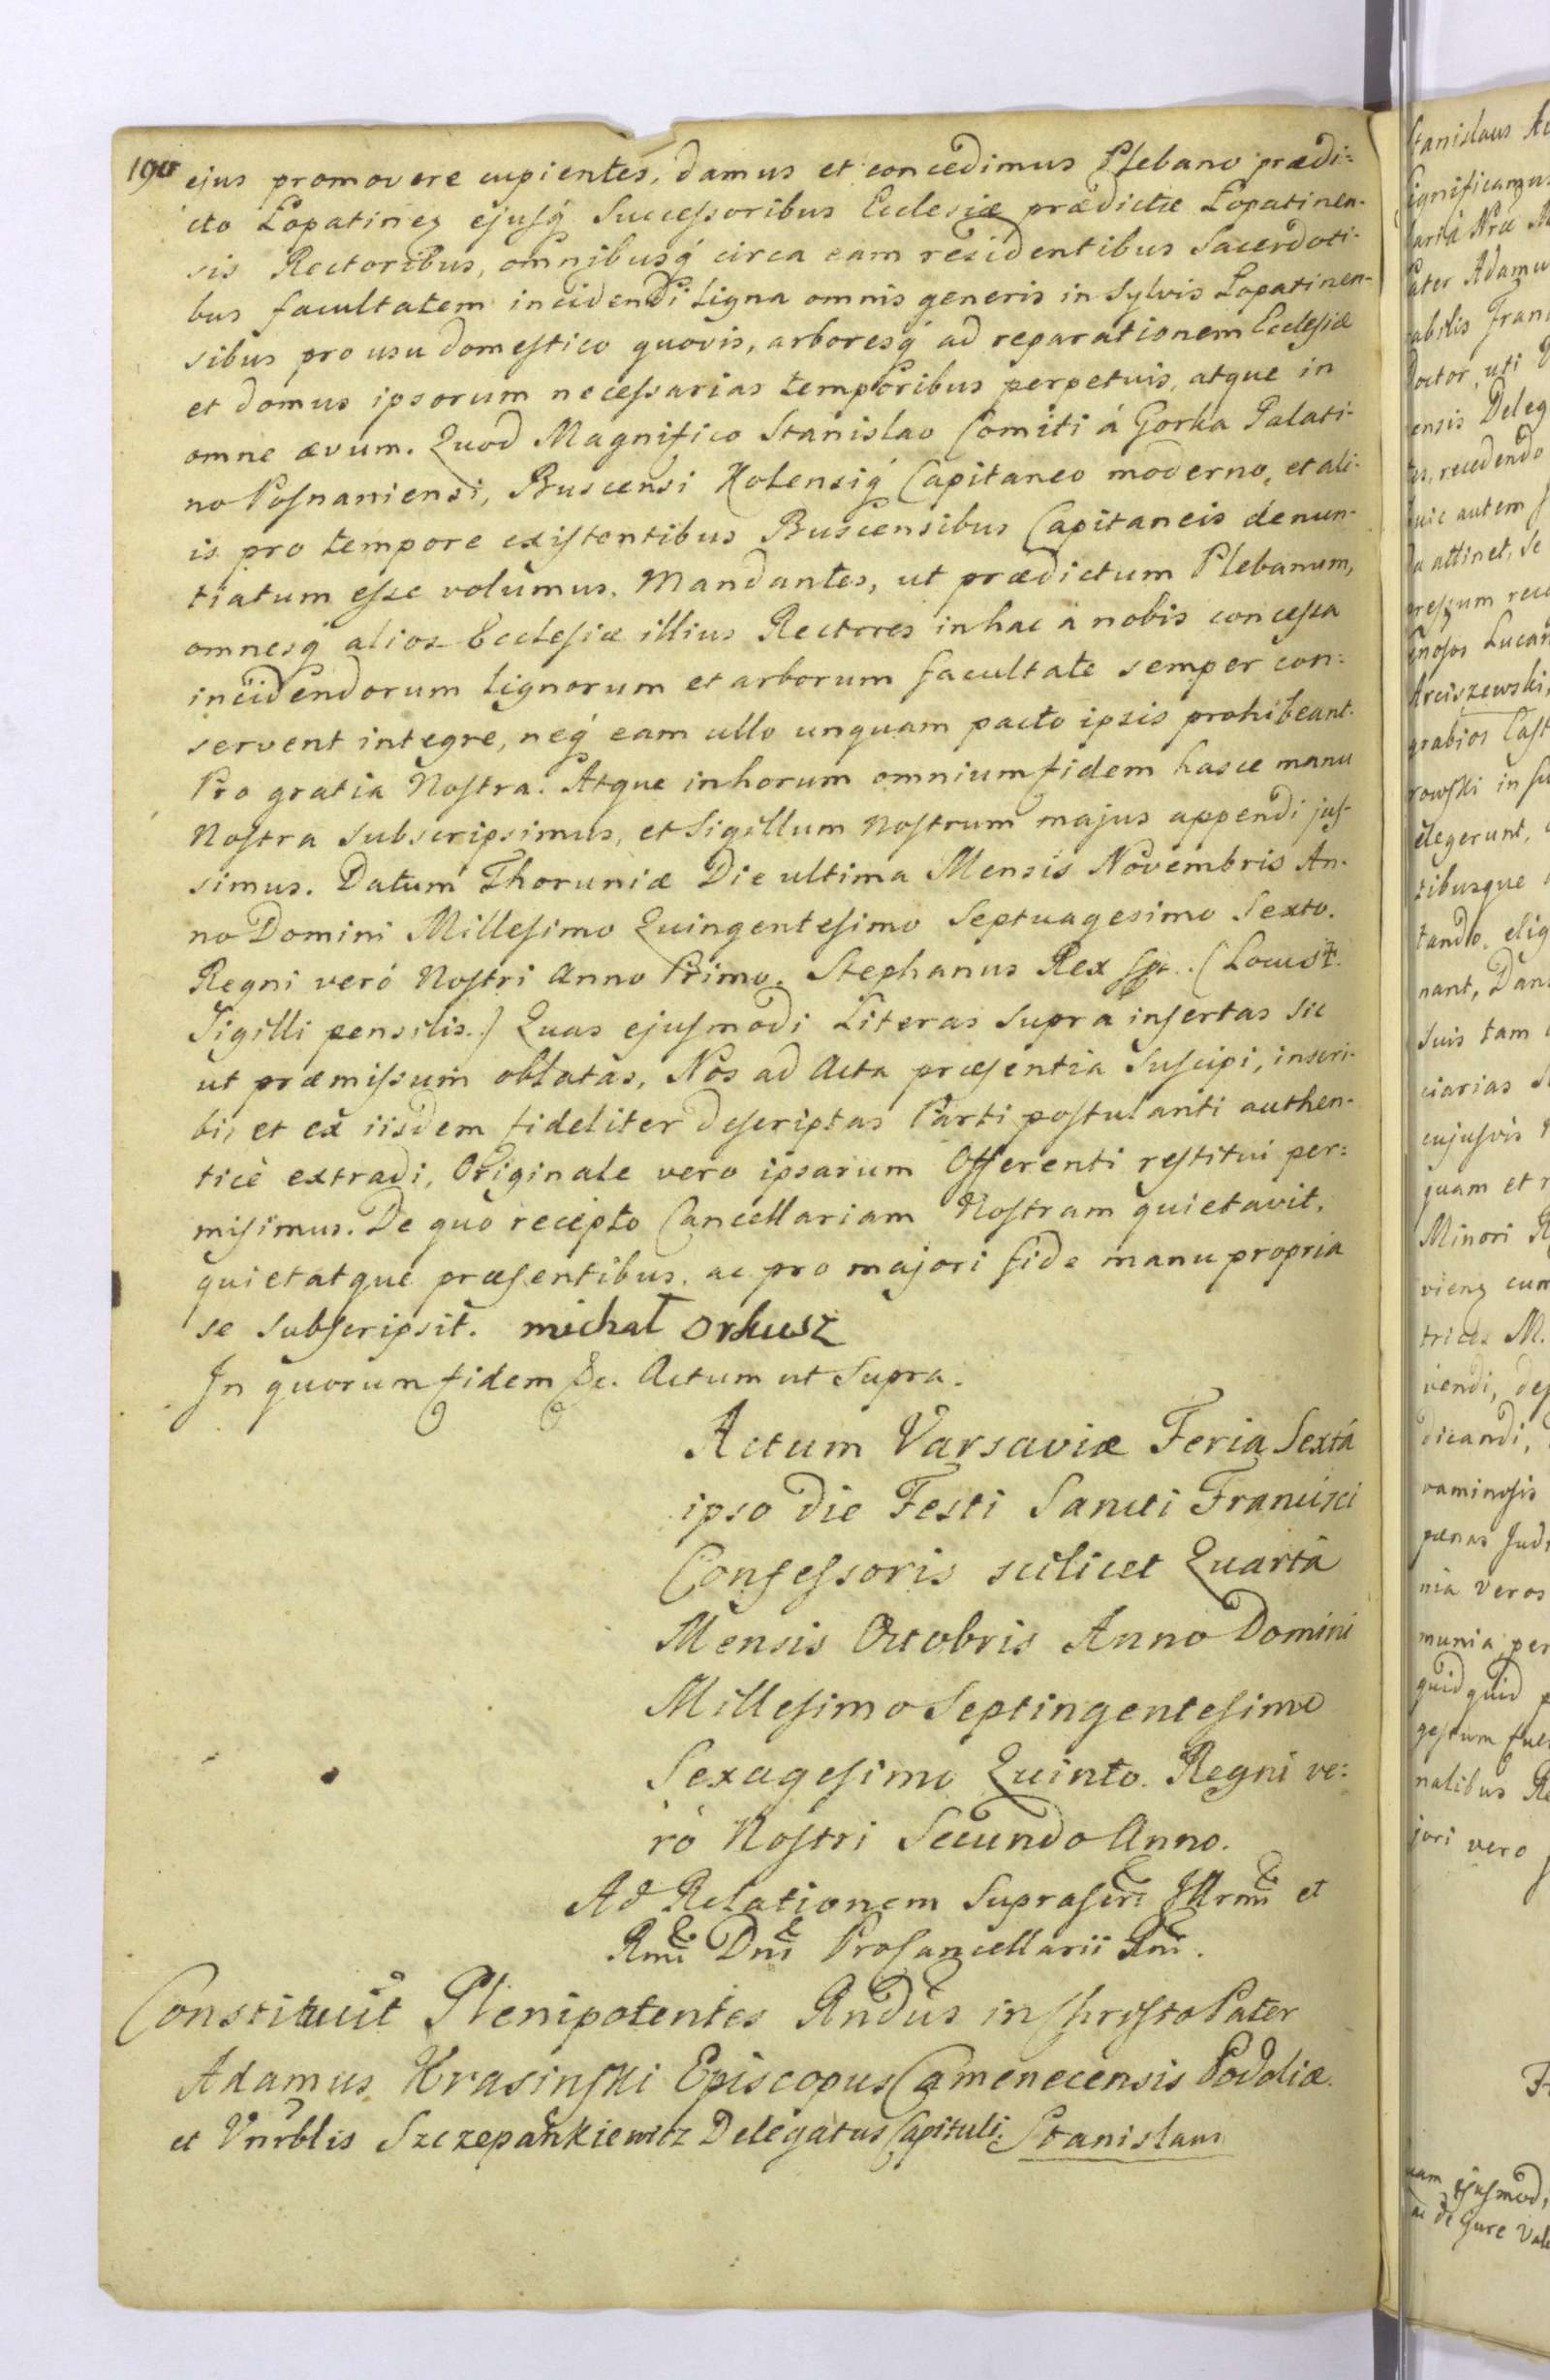 190
ejus promovere cupientes, damus et concedimus Plebano prædi:
cto Lopatinen̄ ejusq́ Successoribus Ecclesiæ prædictæ Lopatinen-
sis Rectoribus, omnibusq́ circa eam residentibus Sacerdoti-
bus facultatem incidendi Ligna omnis generis in Sylvis Lopatinen-
sibus pro usu domestico quovis, arboresq́ ad reparationem Ecclesiæ
et domus ipsorum necessarias temporibus perpetuis, atque in
omne ævum. Quod Magnifico Stanislao Comiti á Gorka Palati-
no Posnaniensi, Buscensi Kolensiq́ Capitaneo moderno, et ali-
is pro tempore existentibus Buscensibus Capitaneis denun-
tiatum esse volumus. Mandantes, ut prædictum Plebanum,
omnesq́ alios Ecclesiæ illius Rectores in hac a nobis concessa
incidendorum Lignorum et arborum facultate semper con:
servent integre, neq́ eam ullo unquam pacto ipsis prohibeant.
Pro gratia Nostra. Atque in horum omnium fidem hasce manu
Nostra subscripsimus, et Sigillum Nostrum majus appendi jus-
simus. Datum Thoruniæ Die ultima Mensis Novembris An-
no Domini Millesimo Quingentesimo Septuagesimo Sexto.
Regni veró Nostri Anno Primo. Stephanus Rex sst. (Locus
Sigilli pensilis.) Quas ejusmodi Literas supra insertas sic
ut præmissum oblatas, Nos ad Acta præsentia suscipi, inscri-
bi, et ex iisdem fideliter descriptas Parti postulanti authen-
ticè extradi, Originale vero ipsarum Offerenti restitui per:
misimus. De quo recepto Cancellariam Nostram quietavit,
quietatque præsentibus, ac pro majori fide manu propria
se subscripsit. michał orkusz
In quorum fidem &c. Actum ut Supra.
Actum Varsaviæ Feria Sextá
ipso die Festi Sancti Francisci
Confessoris scilicet Quartá
Mensis Octobris Anno Domini
Millesimo Septingentesimo
Sexagesimo Quinto. Regni ve:
rò Nostri Secundo Anno.
Ad Relationem Suprascri: Illrmi et
Rmi Dni ProCancellarii Rni.
Constituit Plenipotentes Rndus in Christo Pater
Adamus Krasinski Episcopus Camenecensis Podoliæ
et Vnrblis Szczepankiewitz Delegatus Capituli. Stanislaus
Stanislaus
significamus
Pater Adamus
Doctor, uti
ensis Deleg
recedendo
autem
attinet, se
Lucan
Arciszewski,
elegerunt,
tibusque
tando, elig
nant, Dan
suis tam
ciarias
cujusvis
quam et
Minori
cum
dicandi,
pænas
nia veros
munia, per
quidquid
gestum
nalibus
jori vero
ejusmod,
de Jure